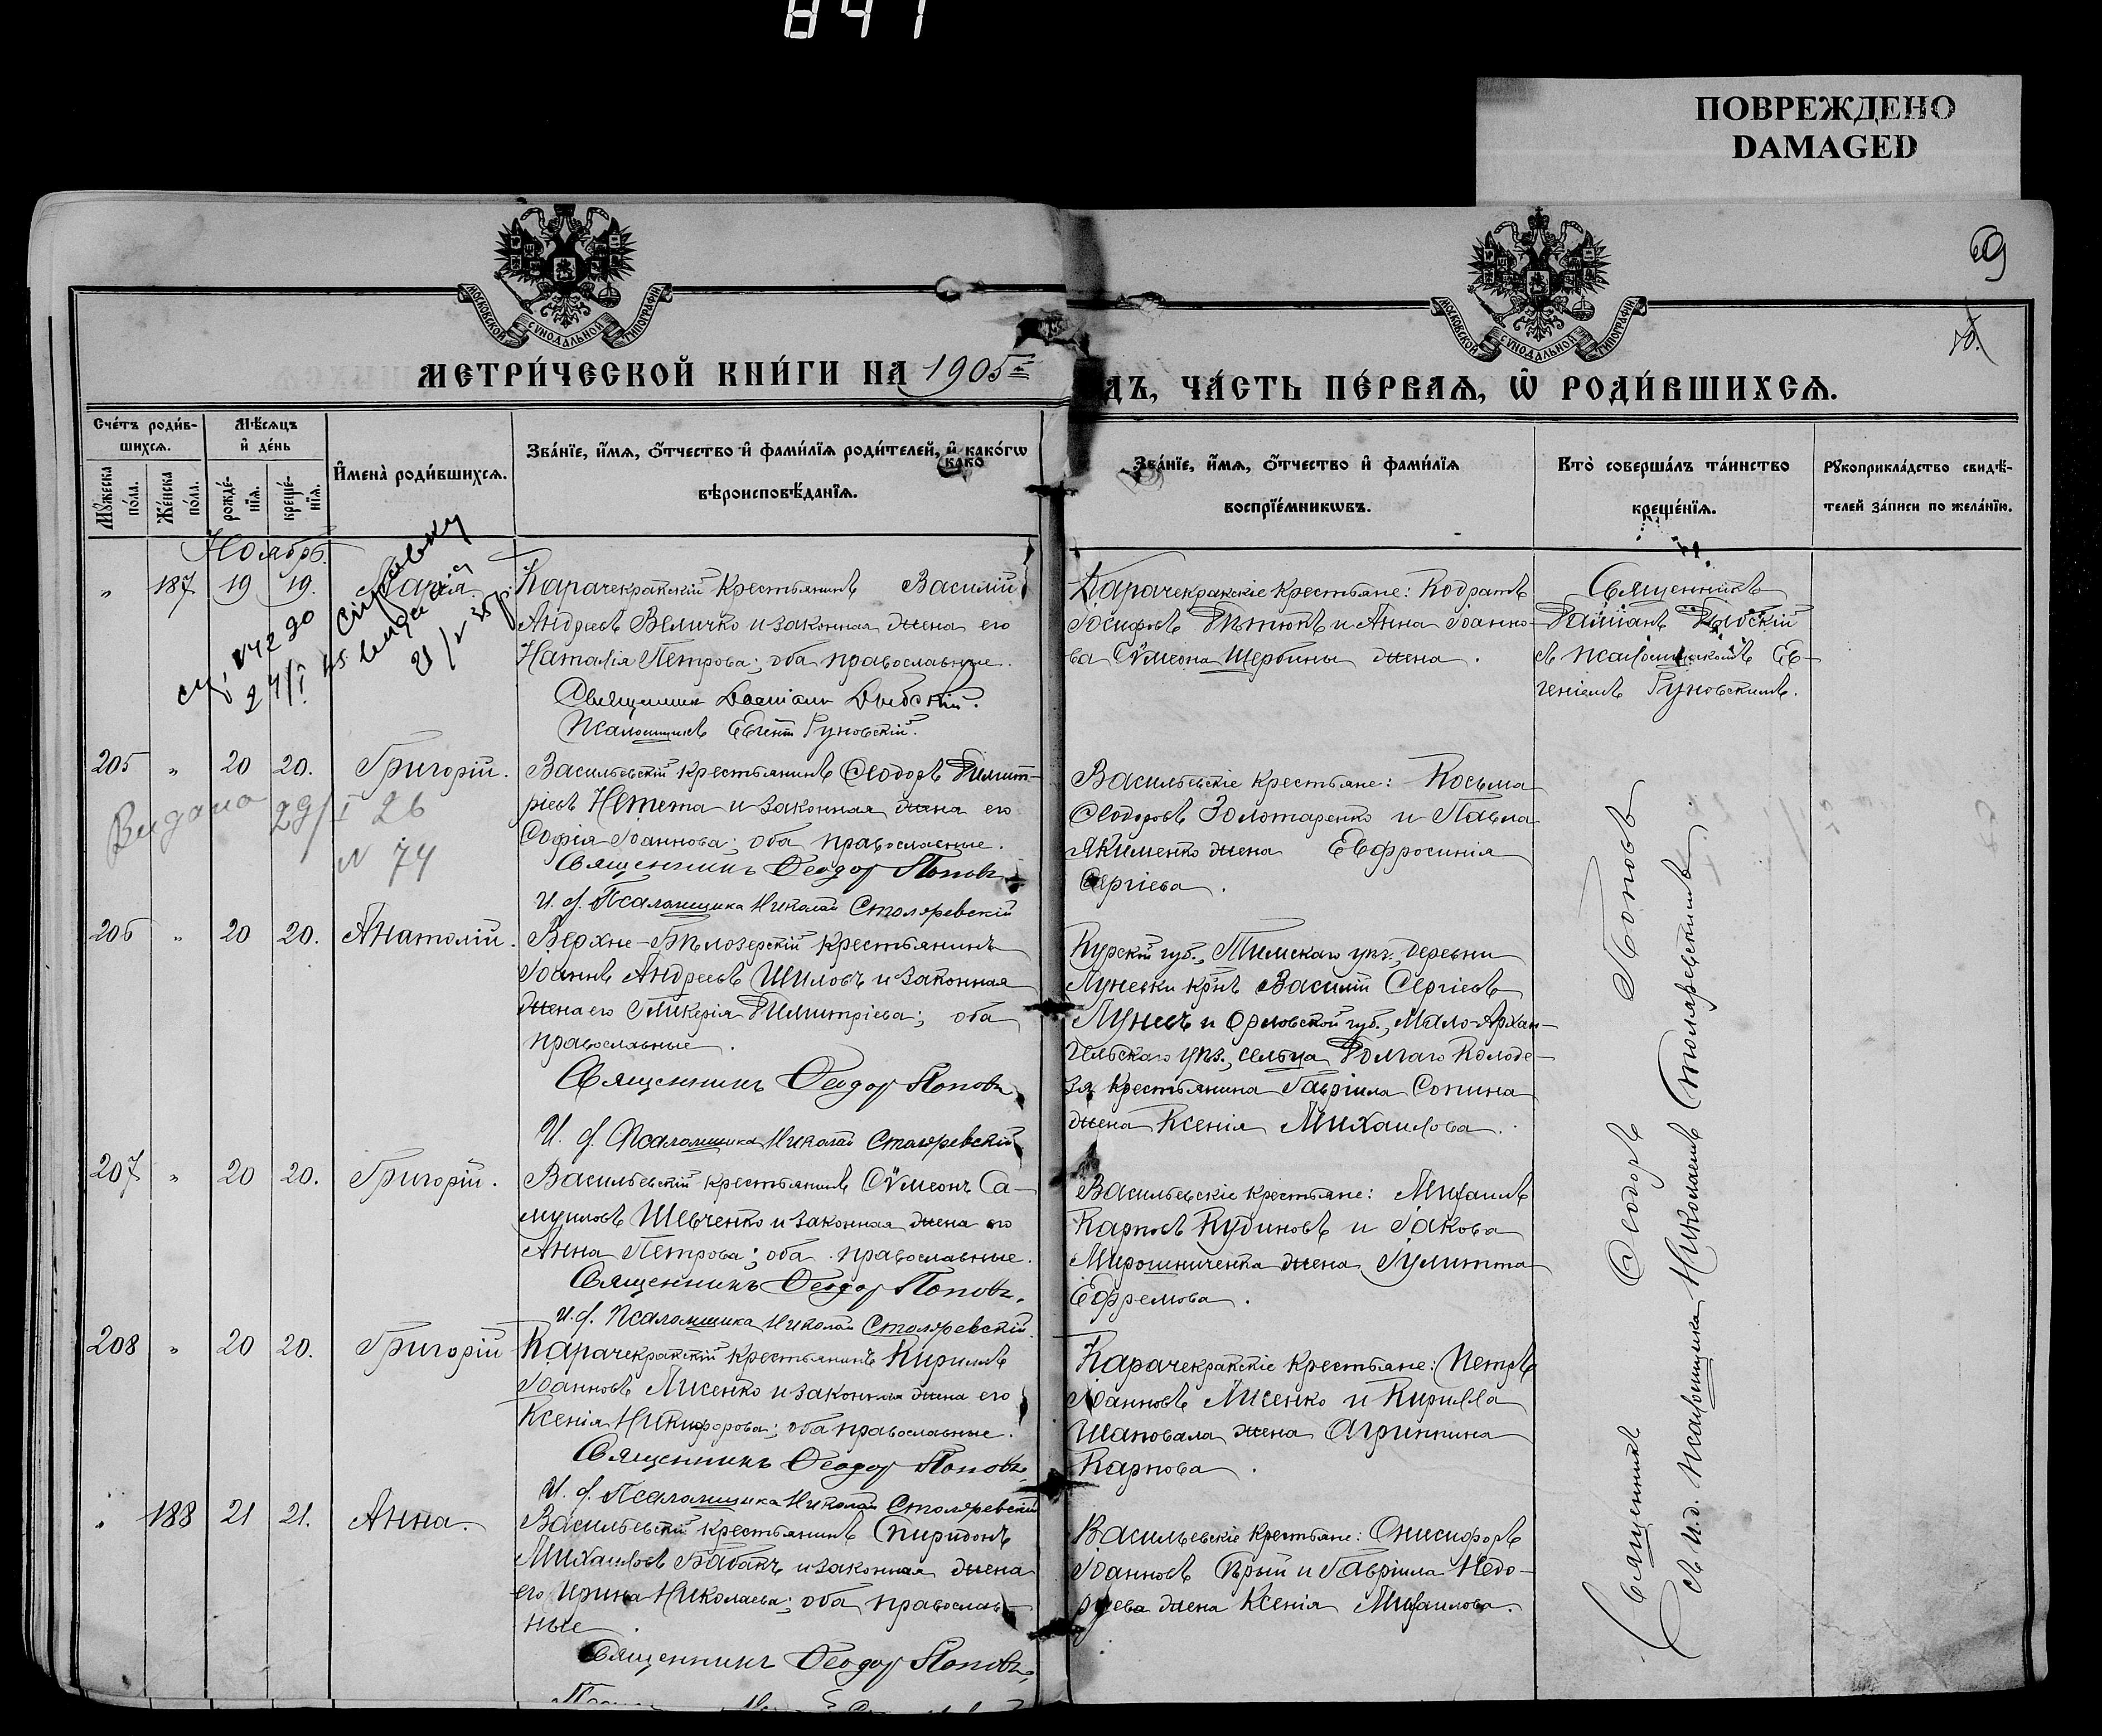 841
ПОВРЕЖДЕНО
DAMAGED
69
МОСКОВСКОЙ СѴНОДАЛЬНОЙ ТИПОГРАФІИ
МОСКОВСКОЙ СѴНОДАЛЬНОЙ ТИПОГРАФІИ
МЕТРИ́ЧЕСКОЙ КНИ́ГИ НА 1905
ДЪ, ЧА́СТЬ ПЕ́РВАѦ, Ѡ РОДИ́ВШИХСѦ.
Сче́тъ роди́в-
шихсѧ.
Мѣ́сѧцъ
и҆ де́нь
Мꙋжеска по́ла.
Же́нска по́ла.
рожде́-нїѧ.
креще́-нїѧ.
И҆мена̀ роди́вшихсѧ.
Зва́нїе, и҆́мѧ, ѻ҆́тчество и҆ фами́лїѧ роди́телей, и҆ како́гѡ
како
вѣроисповѣ́данїѧ.
Зва́нїе, и҆́мѧ, ѻ҆́тчество и҆ фами́лїѧ
воспрїе́мникѡвъ.
Кто̀ соверша́лъ та́инство
креще́нїѧ.
Рꙋкоприкла́дство свидѣ́-
телей за́писи по жела́нїю.
Ноябрь.
" 187 19 19. Марія.
Карачекракскій крестьянинъ Василій
Андреевъ Величко и законная жена его
Наталія Петрова; оба православные.
Священникъ Даміанъ
Псаломщикъ Евгеній Руновскій.
Карачекракскіе крестьяне: Кодратъ
Іосифовъ и Анна Іоанно-
ва Сѵмеона Щербины жена.
Священникъ
Даміанъ
съ псаломщикомъ Ев-
геніемъ Руновскимъ.
205 " 20 20. Григорій.
Видано 29/I 26
N 74
Васильевскій крестьянинъ Ѳеодоръ Димит-
ріевъ Нетета и законная жена его
Софія Іоаннова; оба православные.
Священникъ Ѳеодор Поповъ
И. д. Псаломщика Николай Столяревскій
Васильевскіе крестьяне: Косьма
Ѳеодоровъ Золотаренко и Павла
Якименко жена Евфросинія
Сергіева.
206 " 20 20. Анатолій.
Верхне-Бѣлозерскій крестьянинъ
Іоаннъ Андреевъ Шиловъ и законная
жена его Гликерія Димитріева; оба
православные.
Священникъ Ѳеодор Поповъ
И. д. Псаломщика Николай Столяревскій
Курской губ., Тимскаго уѣз., деревни
Луневки крнъ Василій Сергіевъ
Луневъ и Орловской губ., Мало-Архан-
гельскаго уѣз., сельца Долгаго Колоде-
зя крестьянина Гавріила Сопина
жена Ксенія Михаилова.
207 " 20 20. Григорій.
Васильевскій крестьянинъ Сѵмеонъ Са-
муиловъ Шевченко и законная жена его
Анна Петрова; оба православные.
Священникъ Ѳеодор Поповъ.
И. д. Псаломщика Николай Столяревскій.
Васильевскіе крестьяне: Михаилъ
Карповъ Кудиновъ и Іакова
Мирошниченка жена Іулитта
Ефремова.
208 " 20 20. Григорій
Карачекракскій крестьянинъ Кириллъ
Іоанновъ Лисенко и законная жена его
Ксенія Никифорова; оба православные.
Священникъ Ѳеодор Поповъ.
И. д. Псаломщика Николай Столяревскій
Карачекракскіе крестьяне: Петръ
Іоанновъ Лисенко и Кирилла
Шаповала жена Агриппина
Карпова.
" 188 21 21. Анна.
Васильевскій крестьянинъ Спиридонъ
Михаиловъ Бабакъ и законная жена
его Ирина Николаева; оба православ-
ные
Священникъ Ѳеодор Поповъ.
Васильевскіе крестьяне: Онисифоръ
Іоанновъ и Гавріила Недо-
жена Ксенія Михаилова.
Священникъ Ѳеодоръ Поповъ
съ и.д. псаломщика Николаемъ Столяревскимъ.